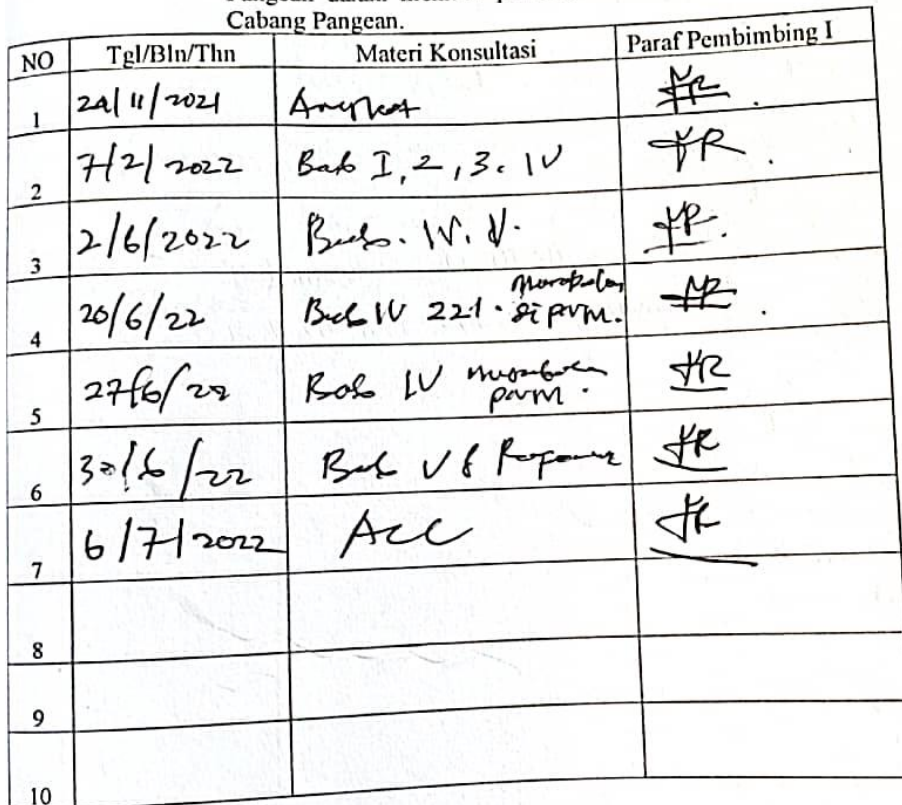 Cabang Pangean.
NO Tgl/Bln/Thn Materi Konsultasi Paraf Pembimbing I
1 24/11/2021 Angket
2 7/2/2022 Bab I, 2, 3. IV
3 2/6/2022 Bab. IV. V.
4 20/6/22 Bab IV 221.
5 27/6/22 Bab IV
6 30/6/22 Bab V &
7 6/7/2022 ACC
8
9
10